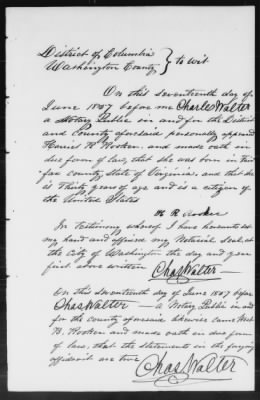 District of Columbia
Washington County } to wit
On this seventeenth day of
June 1857 before me Charles Walter
a Notary Public in and for the District
and County aforesaid personally appeared
Harriet R Hooker, and made oath in
due form of law, that she was born in Fair-
fax county, State of Virginia, and that she
is Thirty years of age and is a citizen of
the United States
H R Hooker
In testimony whereof I have hereunto set
my hand and affixed my Notarial Seal, at
the City of Washington the day and year
first above written Chas Walter
On this seventeenth day of June 1857 before
Chas Walter a Notary Public in and
for the county aforesaid likewise came
R. Hooker and made oath in due form
of law, that the statements in the foregoing
affidavit are true
Chas Walter